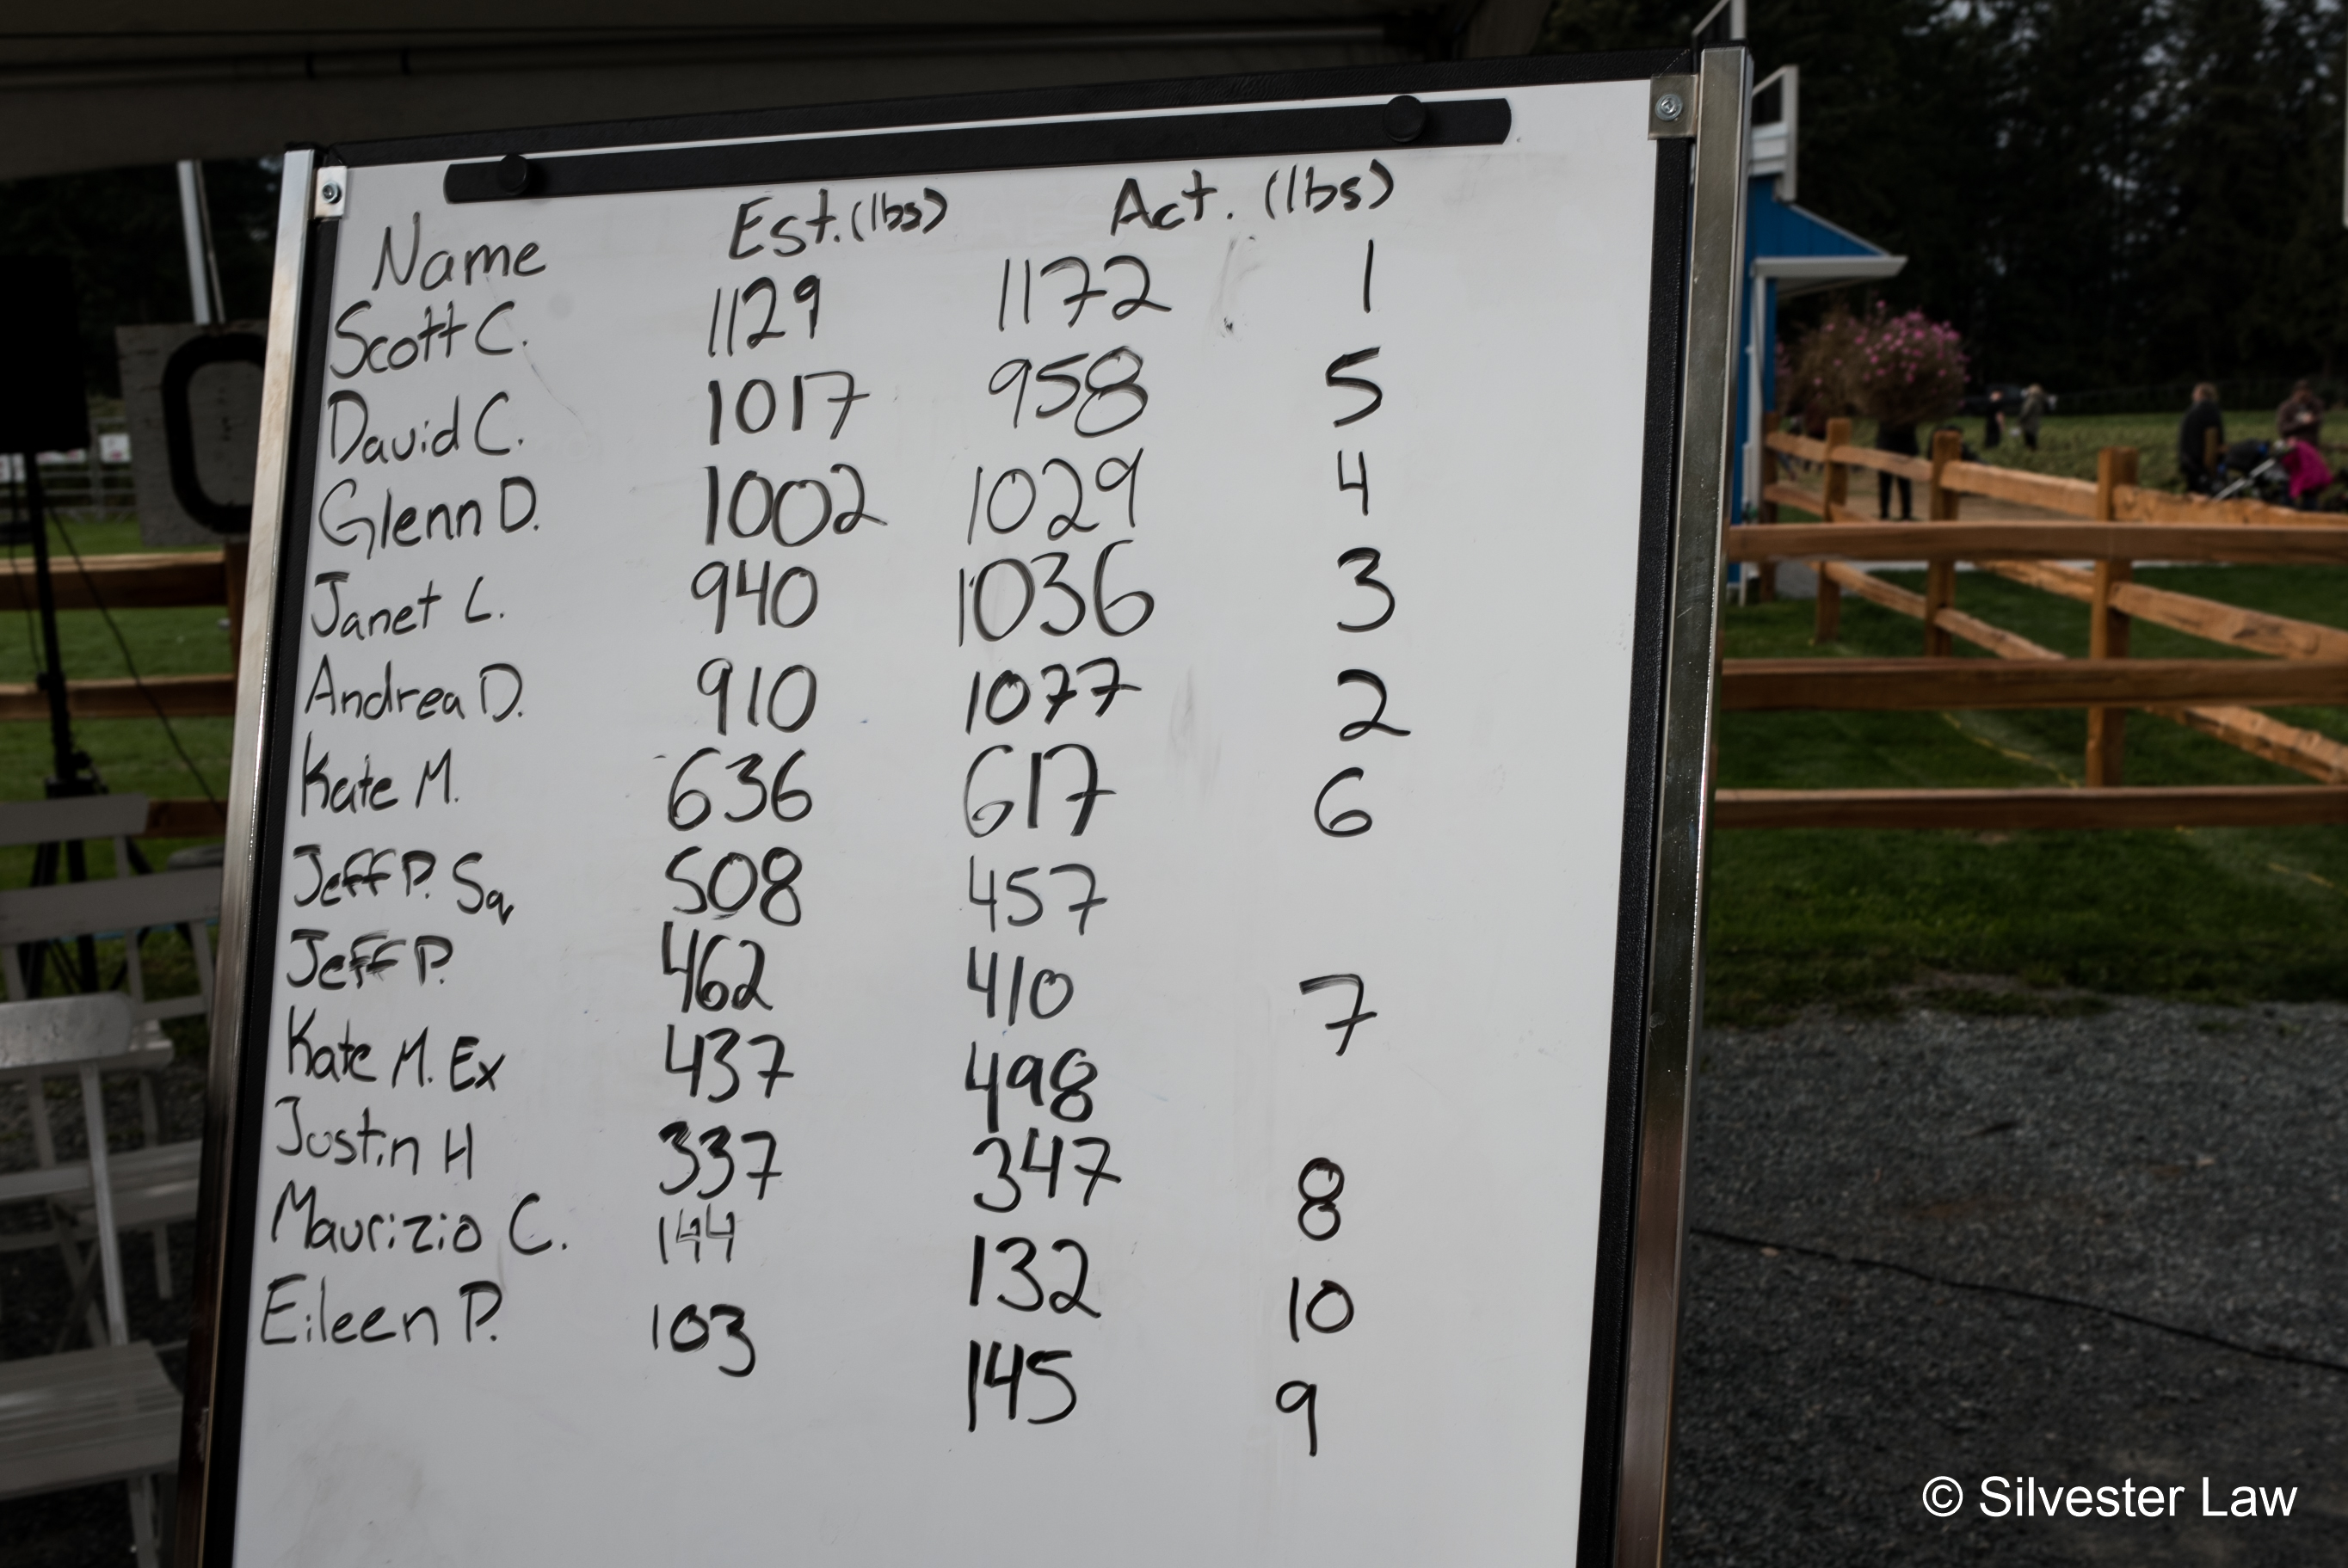 Name Est. (lbs) Act. (lbs)
Scott C. 1129 1172 1
David C. 1017 958 5
Glenn D. 1002 1029 4
Janet L. 940 1036 3
Andrea D. 910 1077 2
Kate M. 636 617 6
Jeff P. Sq 508 457
Jeff P. 462 410 7
Kate M. Ex 437 498
Justin H 337 347 8
Maurizio C. 144 132 10
Eileen P. 103 145 9
© Silvester Law